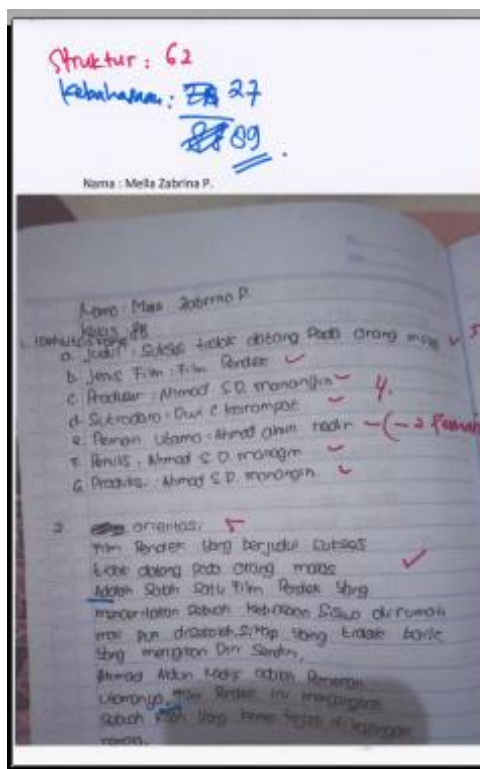 Struktur : 62
Kebahasaan : 27
89
Nama : Mella Zabrina P.
Zabrina P.
Kelas
a. Judul : Sukses tidak datang Pada orang malas
5
b. Jenis Film : Film Pendek
c. Produser : Ahmad S.D. manangin
4.
d. Sutradara : Dwi
e. Pemain Utama : Ahmad
(-2 Pemain
F. Penulis : Ahmad S.D. manangin
G. Produksi : Ahmad S.D. manangin
2 orientasi 5
Film Pendek yang berjudul Sukses
tidak datang Pada orang malas
Adalah Salah Satu Film Pendek yang
menceritakan Sebuah Kebiasaan Siswa di rumah
pun Sikap yang tidak baik
yang merugikan Diri Sendiri,
Ahmad adalah Pemeran
utamanya, Film Pendek ini
Sebuah yang